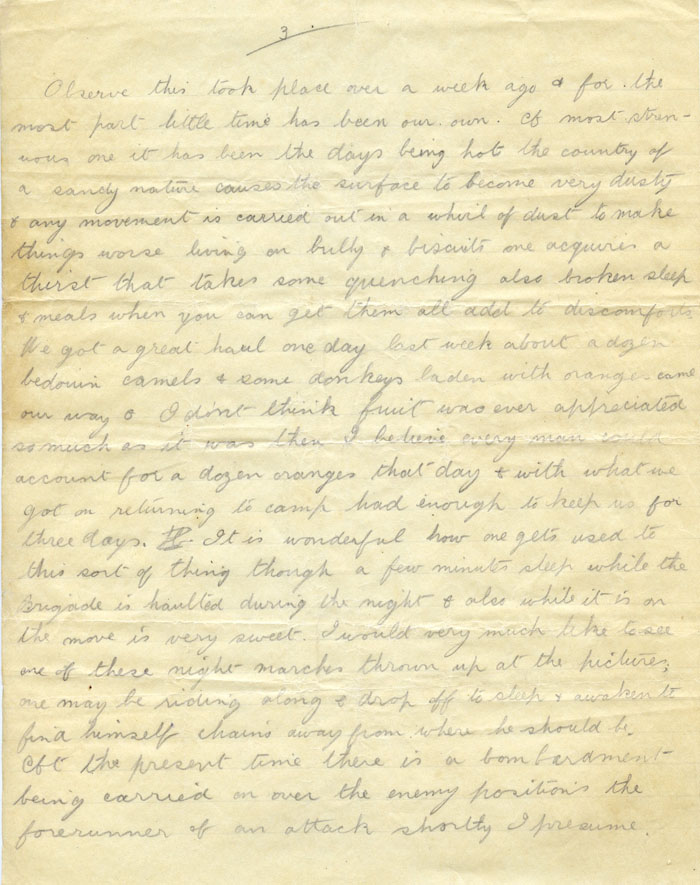 3.
Observe this took place over a week ago & for the
most part little time has been our own. A most stren-
uous one it has been the days being hot the country of
a sandy nature causes the surface to become very dusty
& any movement is carried out in a whirl of dust to make
things worse living on bully & biscuits one acquires a
thirst that takes some quenching also broken sleep
& meals when you can get them all add to discomforts
We got a great haul one day last week about a dozen
bedouin camels & some donkeys laden with oranges came
our way & I don't think fruit was ever appreciated
so much as it was then I believe every man could
account for a dozen oranges that day & with what we
got on returning to camp had enough to keep us for
three days. It is wonderful how one gets used to
this sort of thing though a few minutes sleep while the
Brigade is haulted during the night & also while it is on
the move is very sweet. I would very much like to see
one of these night marches thrown up at the pictures,
one may be riding along & drop off to sleep & awaken to
find himself chains away from where he should be.
At the present time there is a bombardment
being carried on over the enemy positions the
forerunner of an attack shortly I presume.